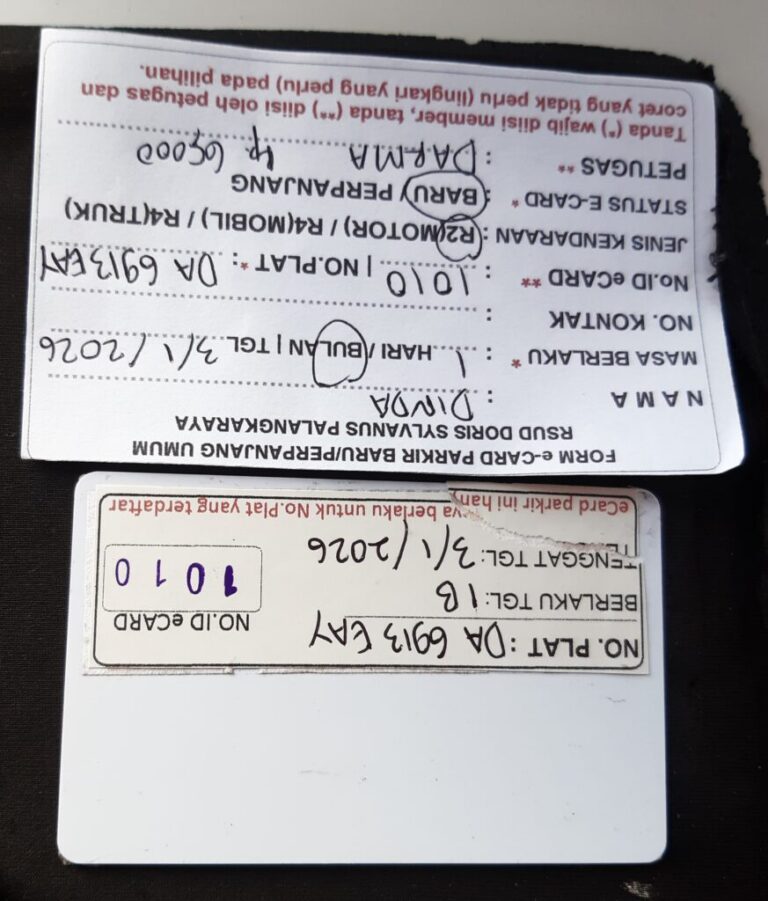 FORM e-CARD PARKIR BARU/PERPANJANG UMUM
RSUD DORIS SYLVANUS PALANGKARAYA
N A M A : DINDA
MASA BERLAKU * : 1 HARI / BULAN | TGL 3/1/2026
NO. KONTAK :
No.ID eCARD ** : 1010 | NO.PLAT *: DA 6913 EAY
JENIS KENDARAAN : R2(MOTOR) / R4(MOBIL) / R4(TRUK)
STATUS E-CARD * : BARU / PERPANJANG
PETUGAS ** : DARMA Rp 65000
Tanda (*) wajib diisi member, tanda (**) diisi oleh petugas dan
coret yang tidak perlu (lingkari yang perlu) pada pilihan.
NO. PLAT : DA 6913 EAY
BERLAKU TGL: 1 B
TENGGAT TGL: 3/1/2026
NO.ID eCARD
1 0 1 0
eCard parkir ini berlaku untuk No.Plat yang terdaftar